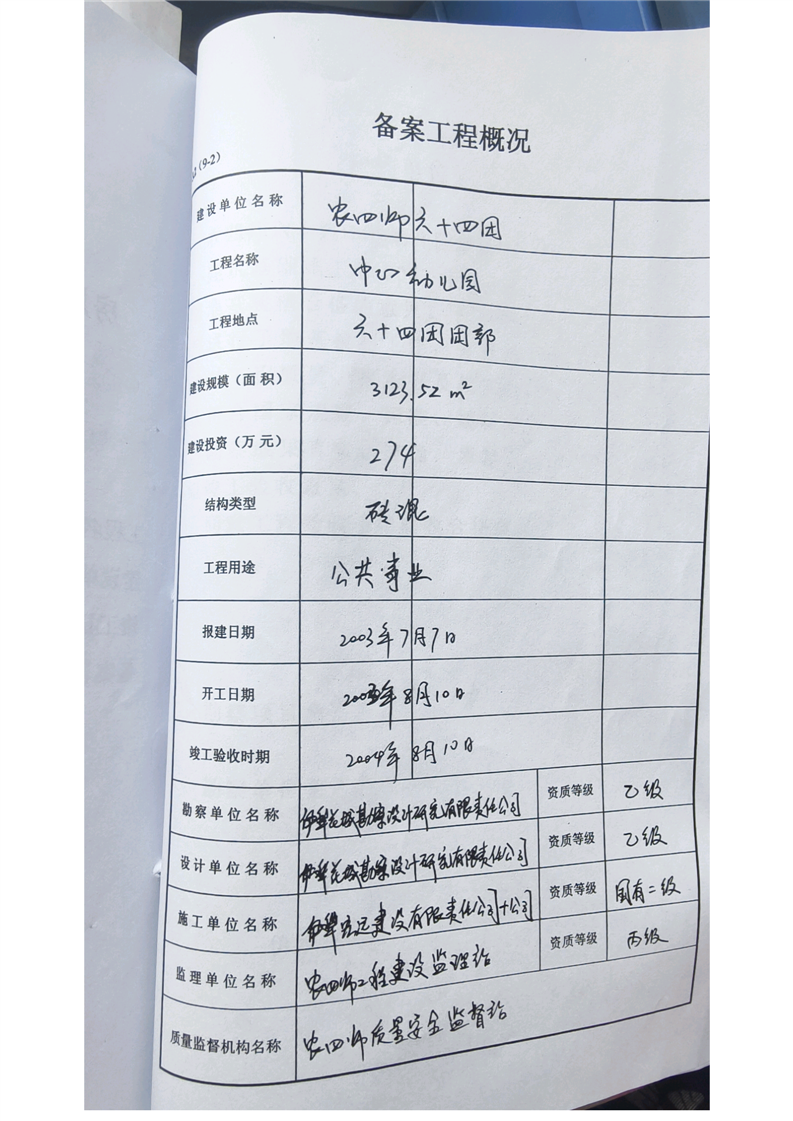 (9-2)
备案工程概况
建设单位名称 农四师六十四团
工程名称 中心幼儿园
工程地点 六十四团团部
建设规模（面积） 3123.52 m²
建设投资（万元） 274
结构类型 砖混
工程用途 公共事业
报建日期 2003年7月7日
开工日期 年8月10日
竣工验收时期 2004年8月10日
勘察单位名称 伊犁花城勘察设计研究有限责任公司 资质等级 乙级
设计单位名称 伊犁花城勘察设计研究有限责任公司 资质等级 乙级
施工单位名称 伊犁 建设有限责任公司十公司 资质等级 国有二级
监理单位名称 农四师工程建设监理站 资质等级 丙级
质量监督机构名称 农四师质量安全监督站